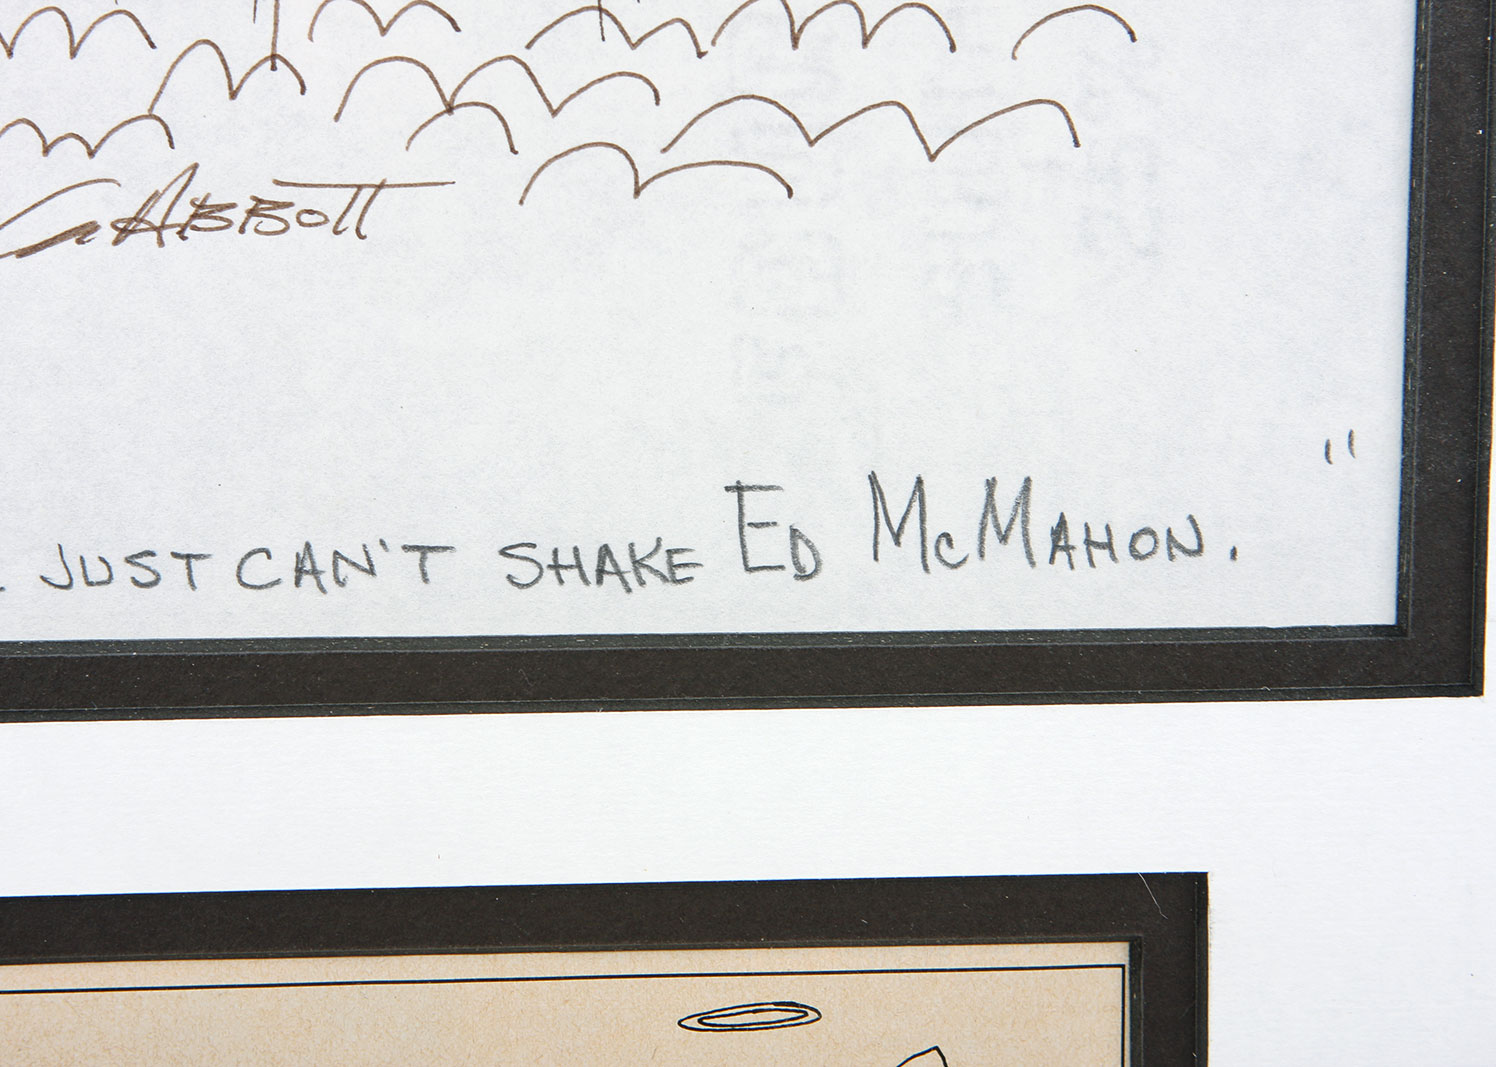 Abbott
JUST CAN'T SHAKE ED McMAHON. "